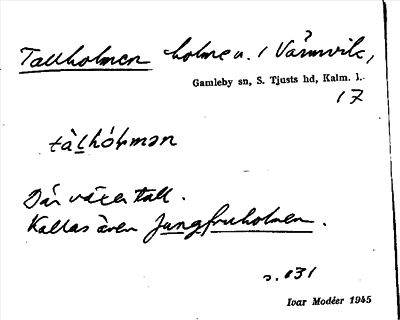 Tallholmen holme n. i Värmvik,
Gamleby sn, S. Tjusts hd, Kalm. l.
17
tàlhólmən
Där växer tall.
Kallas även Jungfruholmen.
s. 131
Ivar Modéer 1945